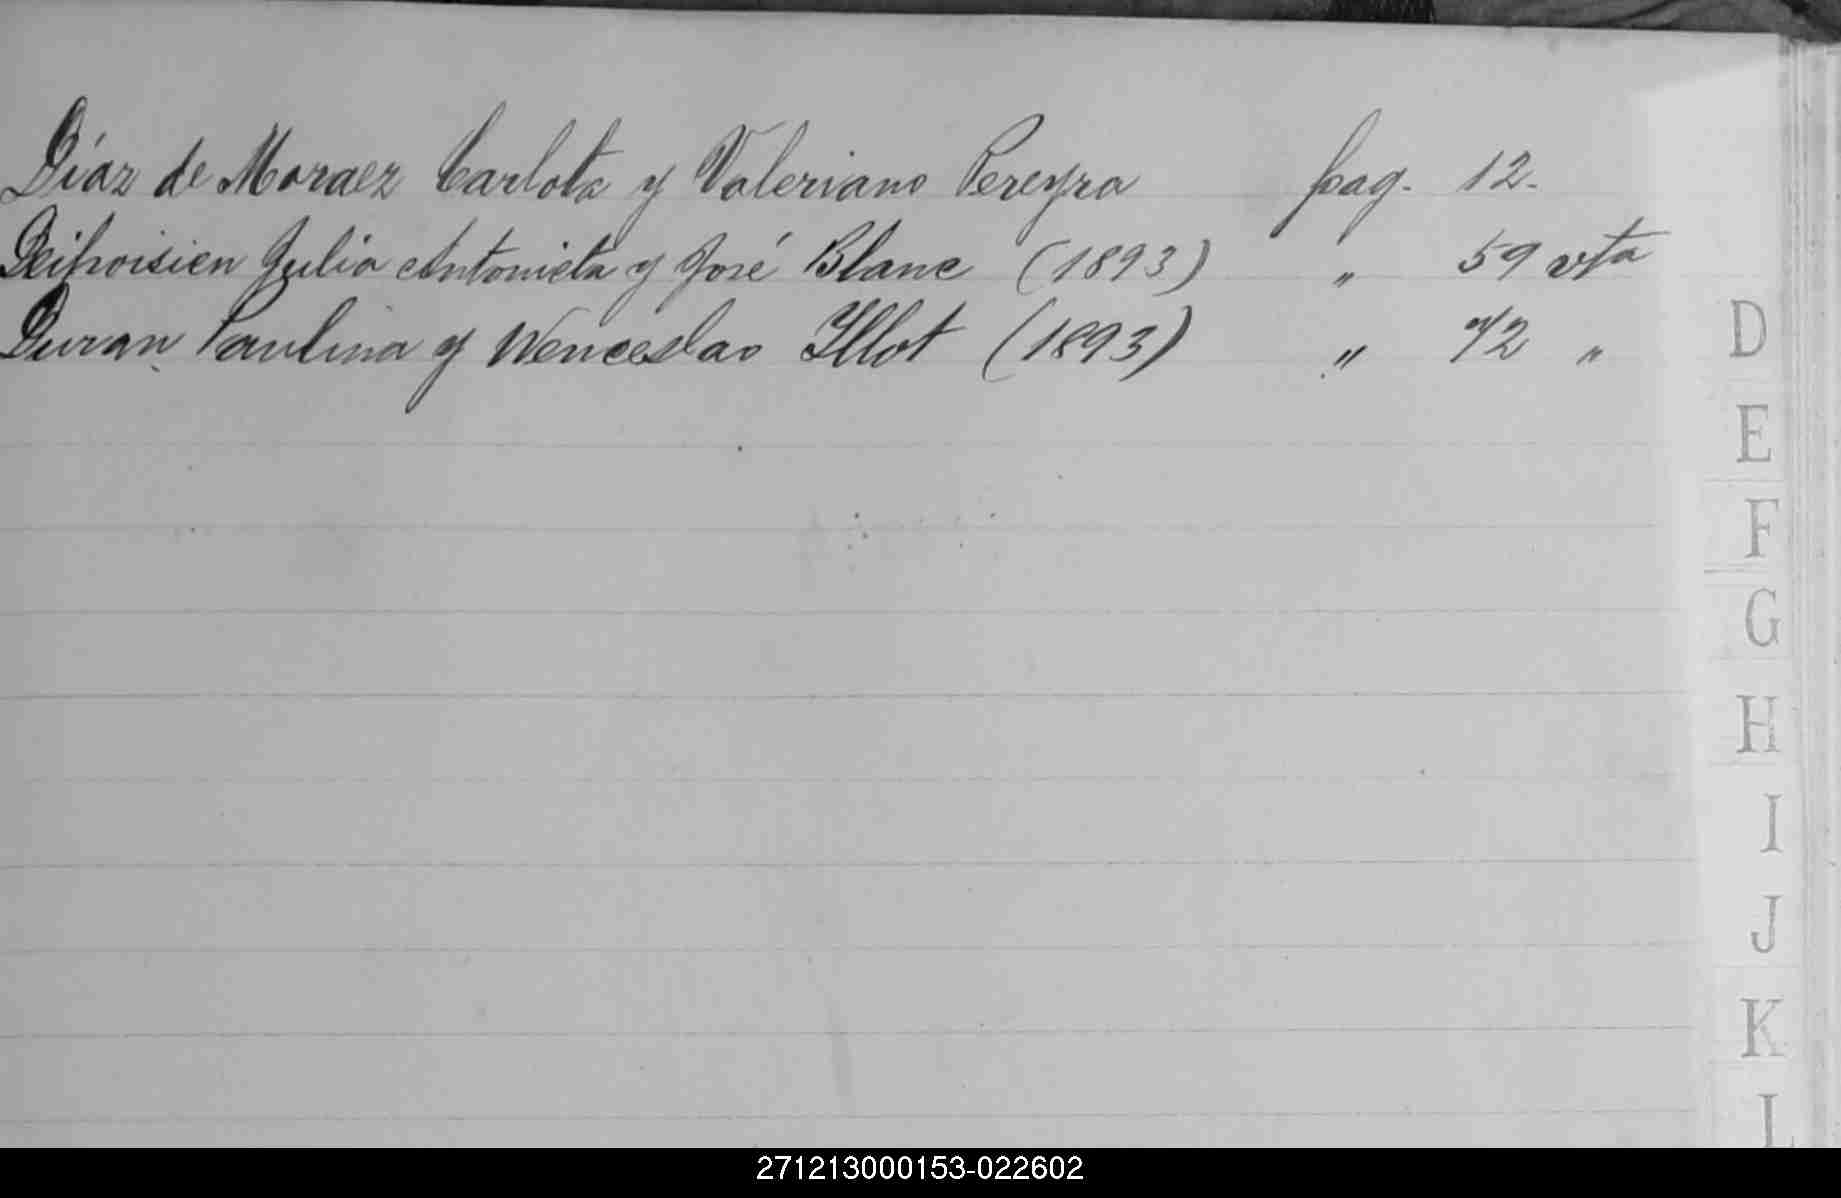 Díaz de Moraez Carlota y Valeriano Pereyra pag. 12.
Julia Antonieta y José Blanc (1893) " 59 vta
Duran Paulina y Wenceslao Illot (1893) " 72 "
D
E
F
G
H
I
J
K
L
271213000153-022602